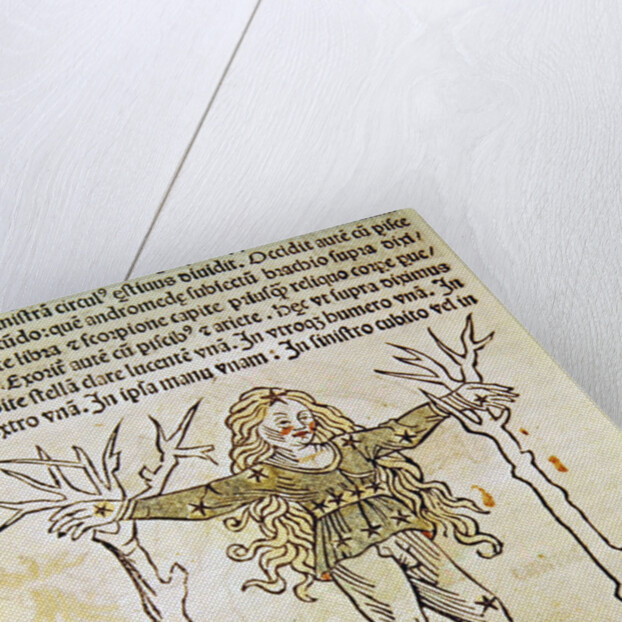 nistrã circulꝰ ęstiuus diuidit. Occidit autẽ cũ pisce
cũdo: quẽ andromedę subiectũ brachio supra dixi/
te libra ⁊ scorpione capite priusꝗ̃ reliquo corpe pue/
. Exorit᷑ autẽ cũ piscibꝰ ⁊ ariete. Hęc vt supra diximus
stellã clare lucentẽ vnã. In vtroꝗꝫ humero vnã. In
xtro vnã. In ipsa manu vnam: In sinistro cubito vel in